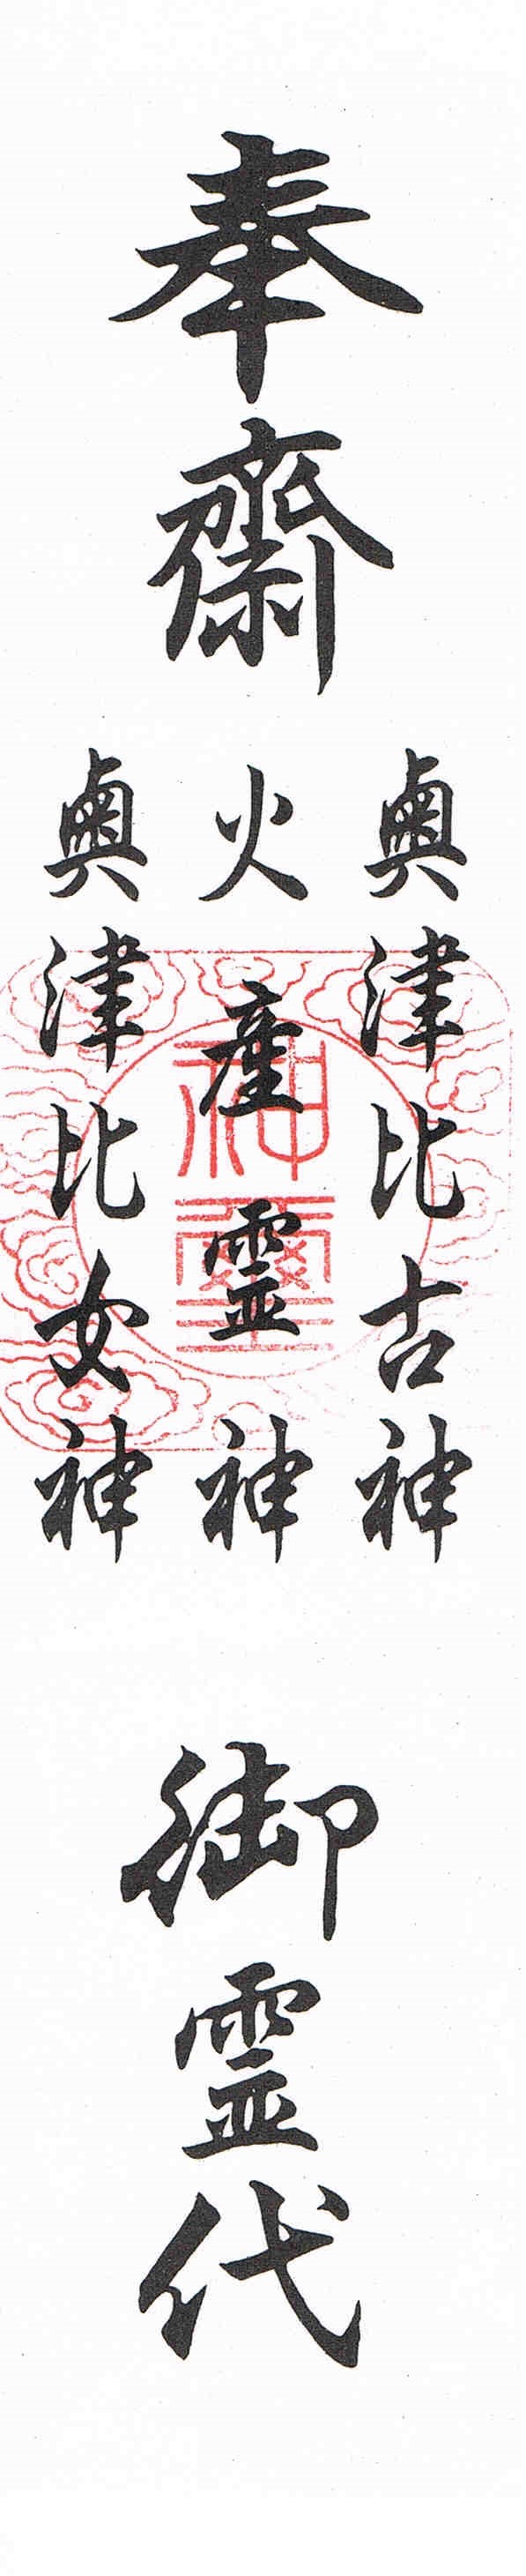 奉齋
奥津比古神
火産霊神
奥津比女神
御霊代
神璽